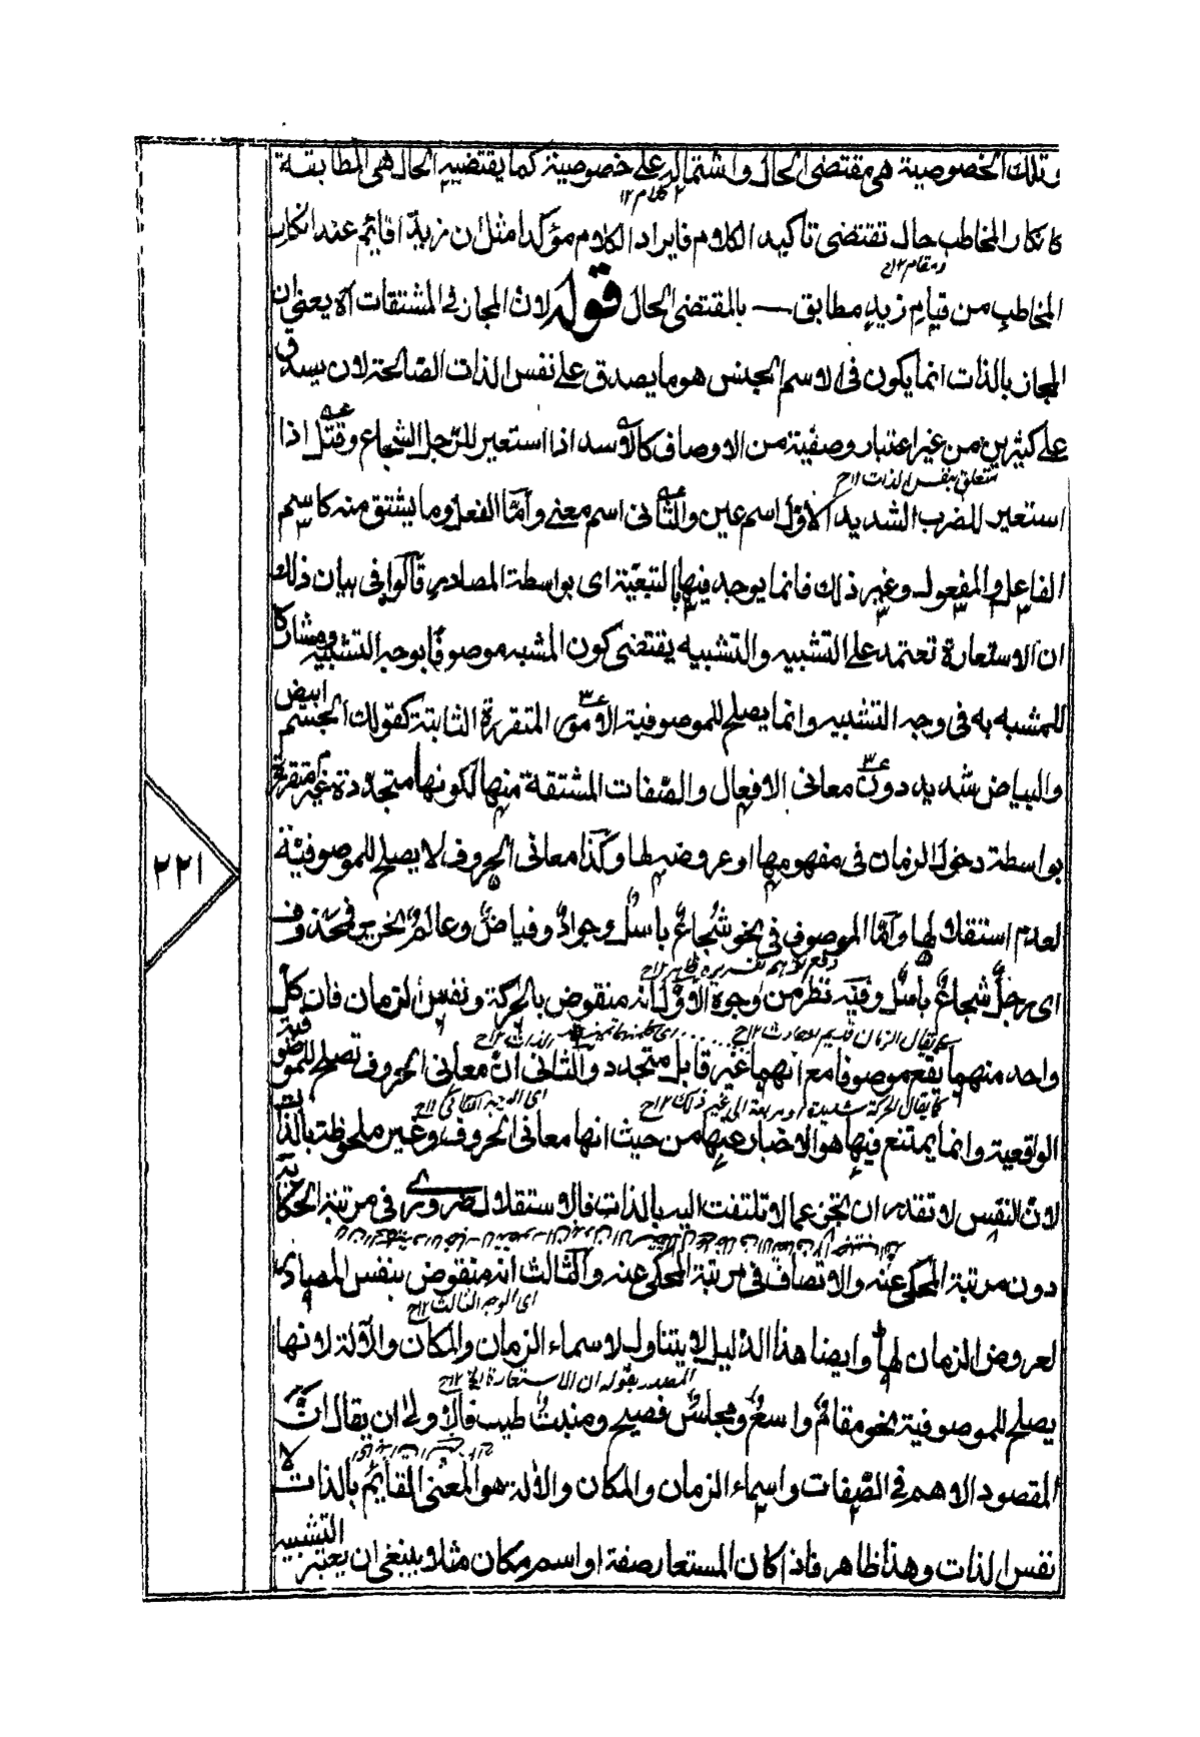 وتلك الخصوصية هى مقتضى الحال واشتماله على خصوصية كما يقتضيه الحال هى المطابقة
كلام ١٢
كانكار المخاطب حال تقتضى تاكيد الكلام فايراد الكلام مؤكدا مثل ان زيدا قايم عند انكار
ومقام ١٢ ح
المخاطب من قيام زيد مطابق — بالمقتضى الحال قوله لان المجاز فى المشتقات آه يعنى ان
المجاز بالذات انما يكون فى الاسم الجنس هو ما يصدق على نفس الذات الصالحة لان يصدق
على كثيرين من غير اعتبار وصفية من الاوصاف كالاسد اذا استعير للرجل الشجاع وقتل اذا
تتعلق بنفس الذات ١٢ ح
استعير للضرب الشديد الاول اسم عين والثانى اسم معنى واما الفعل وما يشتق منه كاسم
الفاعل والمفعول وغير ذلك فانما يوجد فيها بالتبعية اى بواسطة المصادر قالوا فى بيان ذلك
ان الاستعارة تعتمد على التشبيه والتشبيه يقتضى كون المشبه موصوفا بوجه التشبيه ومشاركا
للمشبه به فى وجه التشبيه وانما يصلح للموصوفية الامور المتقررة الثابتة كقولك الجسم ابيض
والبياض شديد دون معانى الافعال والصفات المشتقة منها لكونها متجددة غير متقررة
بواسطة دخول الزمان فى مفهومها او عروضه لها وكذا معانى الحروف لا يصلح للموصوفية
لعدم استقلالها واما الموصوف فى نحو شجاع باسل وجواد فياض وعالم نحرير فمحذوف
اى رجل شجاع باسل وفيه نظر من وجوه الاول انه منقوض بالحركة ونفس الزمان فان كل
كما يقال الزمان قديم او حادث ١٢ ح
واحد منهما يقع موصوفا مع انهما غير قابل متجدد والثانى ان معانى الحروف تصلح للموصوفية
كما يقال الحركة شديدة او سريعة الى غير ذلك ١٢ ح
اى الوجه الثانى ١٢ ح
الواقعية وانما يمتنع فيها هو الاخبار عنها من حيث انها معانى الحروف وغير ملحوظة بالذات
لان النفس لا تقدر ان تخبر عما لا تلتفت اليه بالذات فالاستقلال ضرورى فى مرتبة الحكاية
دون مرتبة المحكى عنه والاتصاف فى مرتبة المحكى عنه والثالث انه منقوض بنفس المصادر
اى الوجه الثالث ١٢ ح
لعروض الزمان لها وايضا هذا الدليل لا يتناول لاسماء الزمان والمكان والآلة لانها
المصدر بقوله ان الاستعارة الخ ١٢ ح
يصلح للموصوفية نحو مقام واسع ومجلس فصيح ومنبت طيب فالاولى ان يقال ان
المقصود الاهم فى الصفات واسماء الزمان والمكان والالة هو المعنى القايم بالذات لا
نفس الذات وهذا ظاهر فاذا كان المستعار صفة او اسم مكان مثلا ينبغى ان يعتبر التشبيه
٢٢١